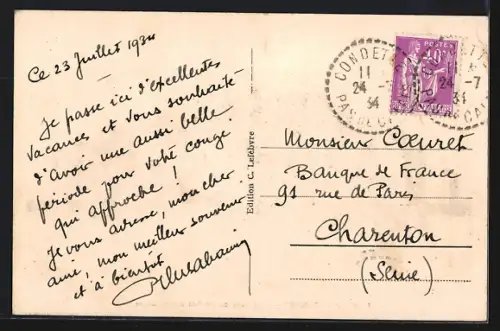 Ce 23 Juillet 1934
Je passe ici d'excellentes
vacances et vous souhaite
d'avoir une aussi belle
période pour votre congé
qui approche !
Je vous adresse, mon cher
ami, mon meilleur souvenir
et à bientôt
Edition C. Lefèbvre
CONDETTE
24 -7
34
PAS DE CALAIS
POSTES
40c
Monsieur Cœuret
Banque de France
91 rue de Paris
Charenton
(Seine)